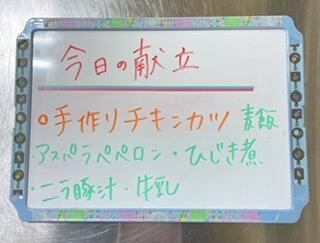 今日の献立
○手作りチキンカツ 麦飯
・アスパラペペロン・ひじき煮
・ニラ豚汁・牛乳